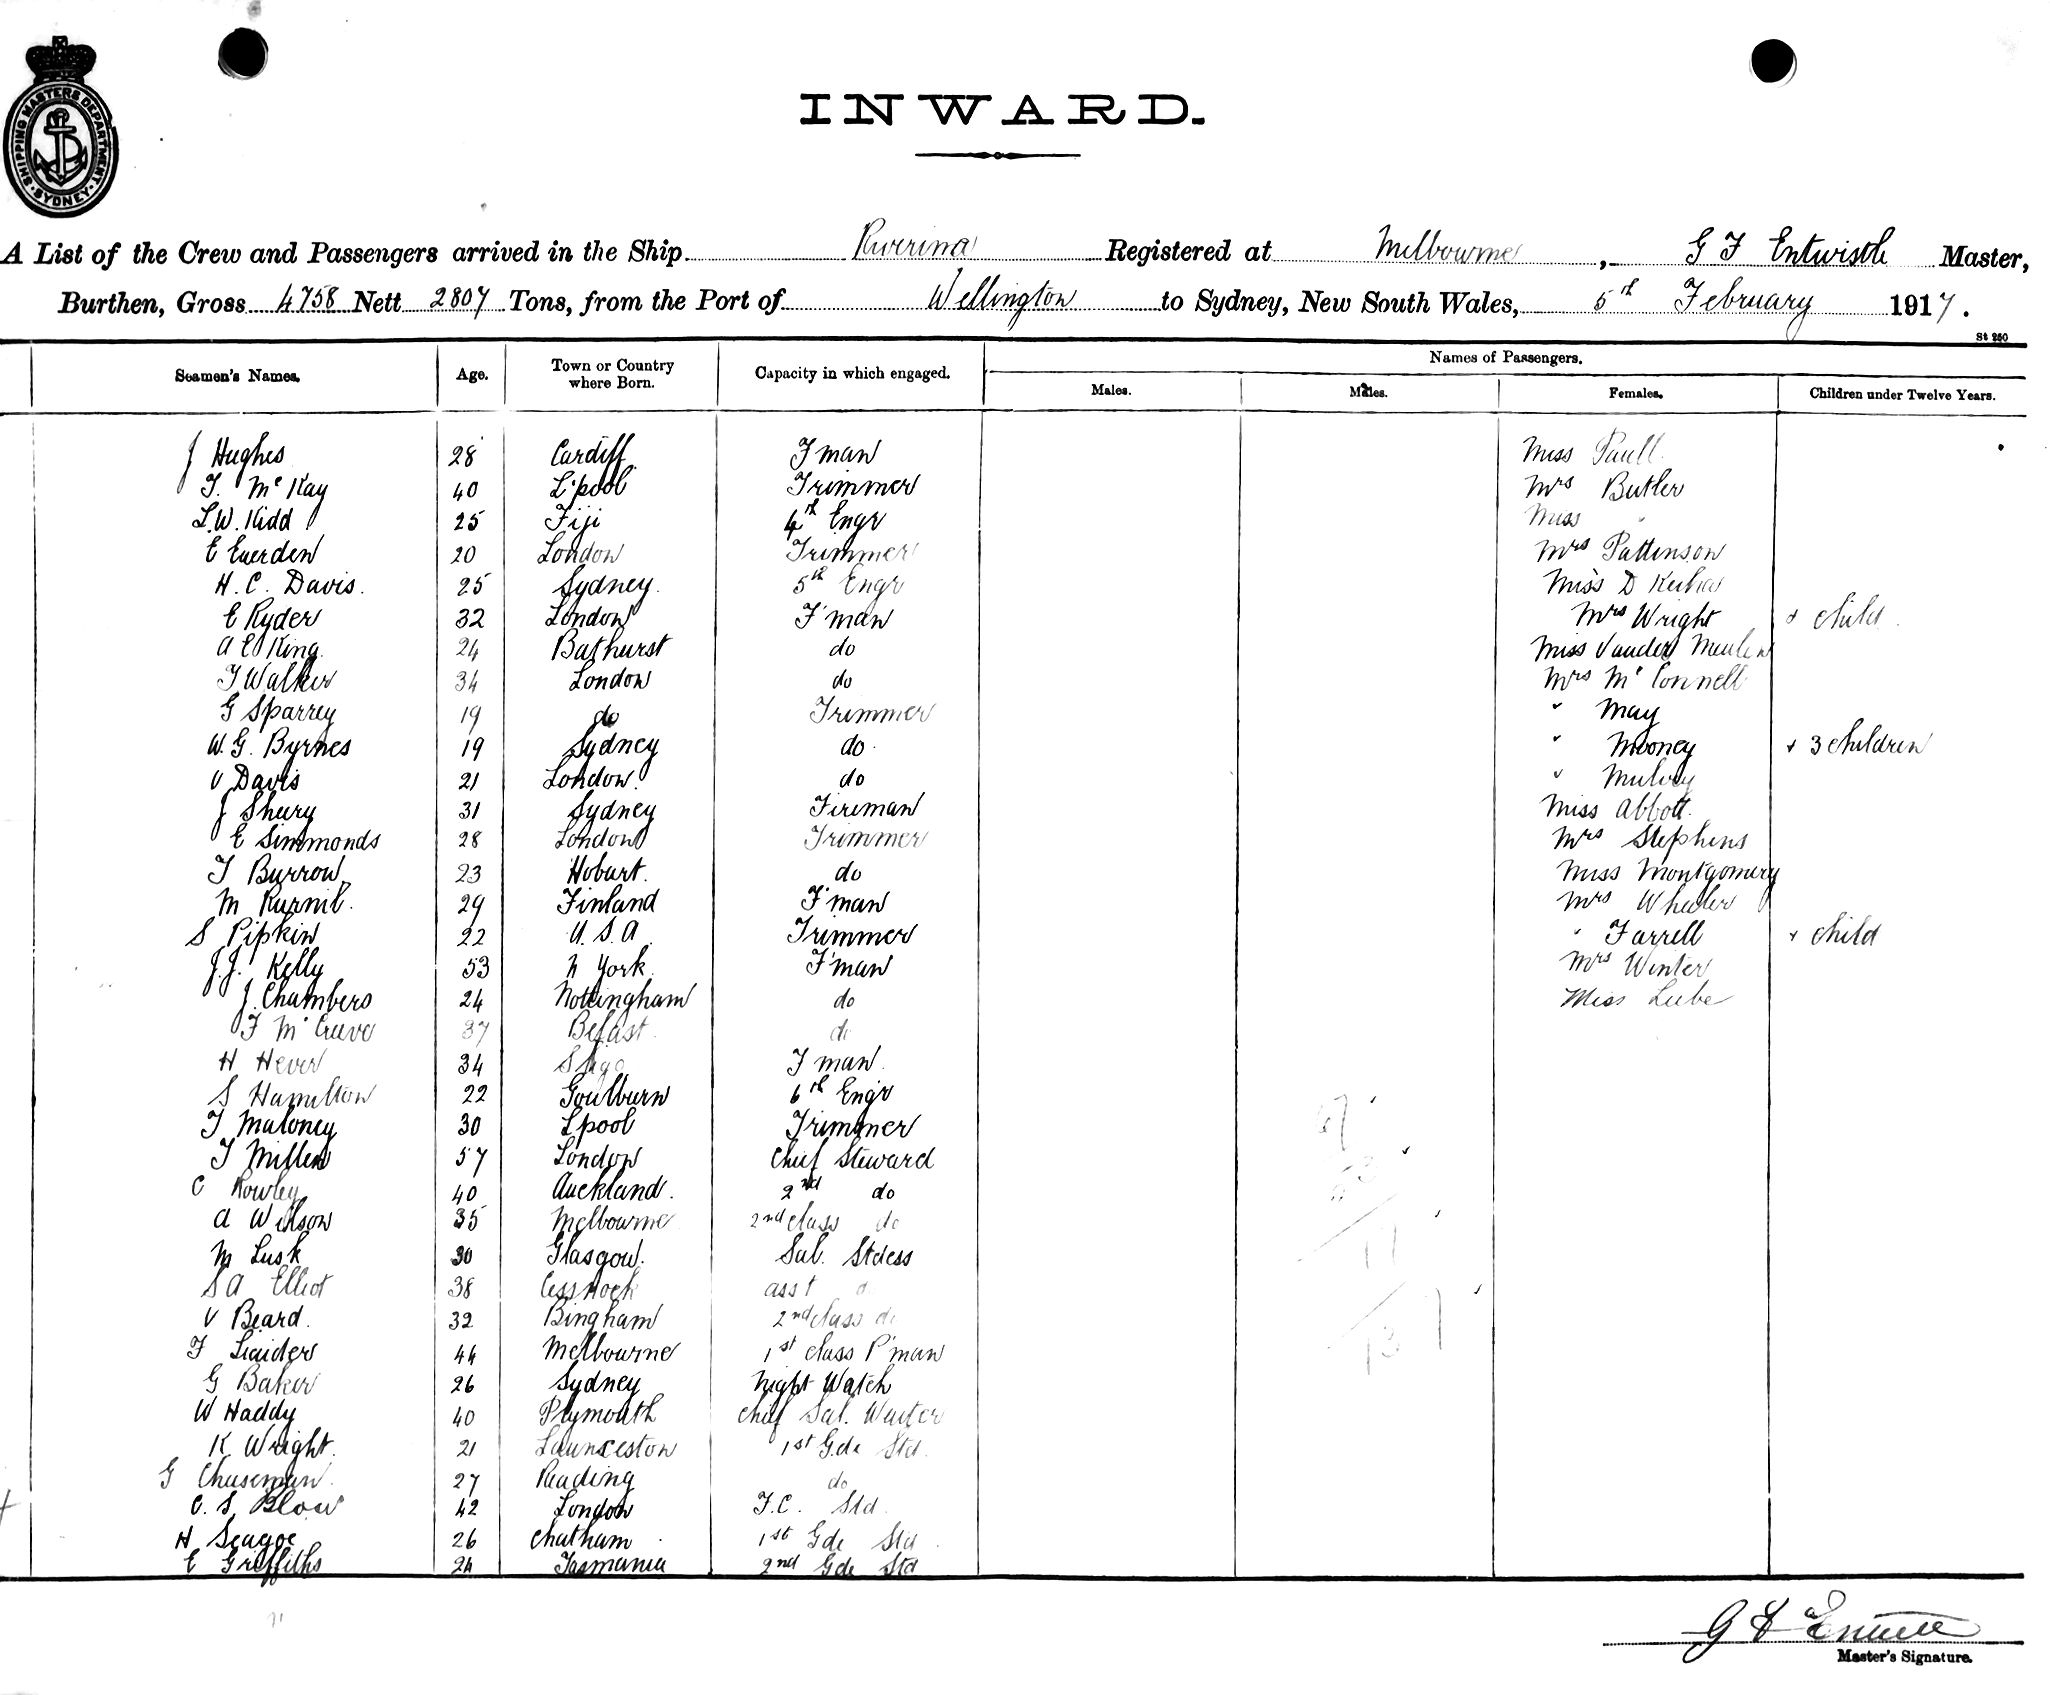 SHIPPING MASTERS DEPARTMENT · SYDNEY ·
INWARD.
A List of the Crew and Passengers arrived in the Ship Riverina Registered at Melbourne, G F Entwistle Master,
Burthen, Gross 4758 Nett 2807 Tons, from the Port of Wellington to Sydney, New South Wales, 5th February 1917.
St 250
Seamen's Names. Age. Town or Country where Born. Capacity in which engaged. Names of Passengers.
Males. Males. Females. Children under Twelve Years.
J Hughes 28 Cardiff F'man Miss Paull
T. McKay 40 L'pool Trimmer Mrs Butler
L.W. Kidd 25 Fiji 4th Engr Miss "
E Everden 20 London Trimmer Mrs Pattinson
H. C. Davis. 25 Sydney. 5th Engr Miss D
E Ryder 32 London F'man Mrs Wright + child
A E King 24 Bathurst do Miss Vander Meulen
T Walker 34 London do Mrs McConnell
G Sparrey 19 do Trimmer " May
W. G. Byrnes 19 Sydney do " Mooney + 3 children
V Davis 21 London. do " Mulvey
J Shury 31 Sydney Fireman Miss Abbott.
E Simmonds 28 London Trimmer Mrs Stephens
T Burrow 23 Hobart. do Miss Montgomery
M 29 Finland F'man Mrs Wheeler
S Pipkin 22 U.S.A Trimmer " Farrell + child
J.J. Kelly 53 N York. F'man Mrs Winter
J. Chambers 24 Nottingham do Miss Lube
F 37 Belfast. do
H Hever 34 Sligo F'man
S Hamilton 22 Goulburn 6th Engr
T Maloney 30 L'pool Trimmer
T Millen 57 London Chief Steward
C Rowley 40 Auckland. 2nd do
A Wilson 35 Melbourne 2nd class do
M Lusk 30 Glasgow. Sal. Stdess
S A Elliot 38 Cessnock asst d
V Beard. 32 Bingham 2nd class do
F 44 Melbourne 1st class P'man
G Baker 26 Sydney Night Watch
W Haddy 40 Plymouth Chief Sal. Waiter
K Wright. 21 Launceston 1st Gde Std.
G Chuseman. 27 Reading do
C. S. Blow 42 London F.C. Std.
H Seagoe 26 Chatham 1st Gde Std
E Griffiths 24 Tasmania 2nd Gde Std
Master's Signature.